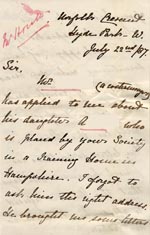 Norfolk Crescent
Hyde Park. W.
July 22nd
Sir.
Mr.
has applied to me about
his daughter A who
is placed by your Society
in a Training Home in
Hampshire. I forgot to
ask him the right address.
He brought me some letters